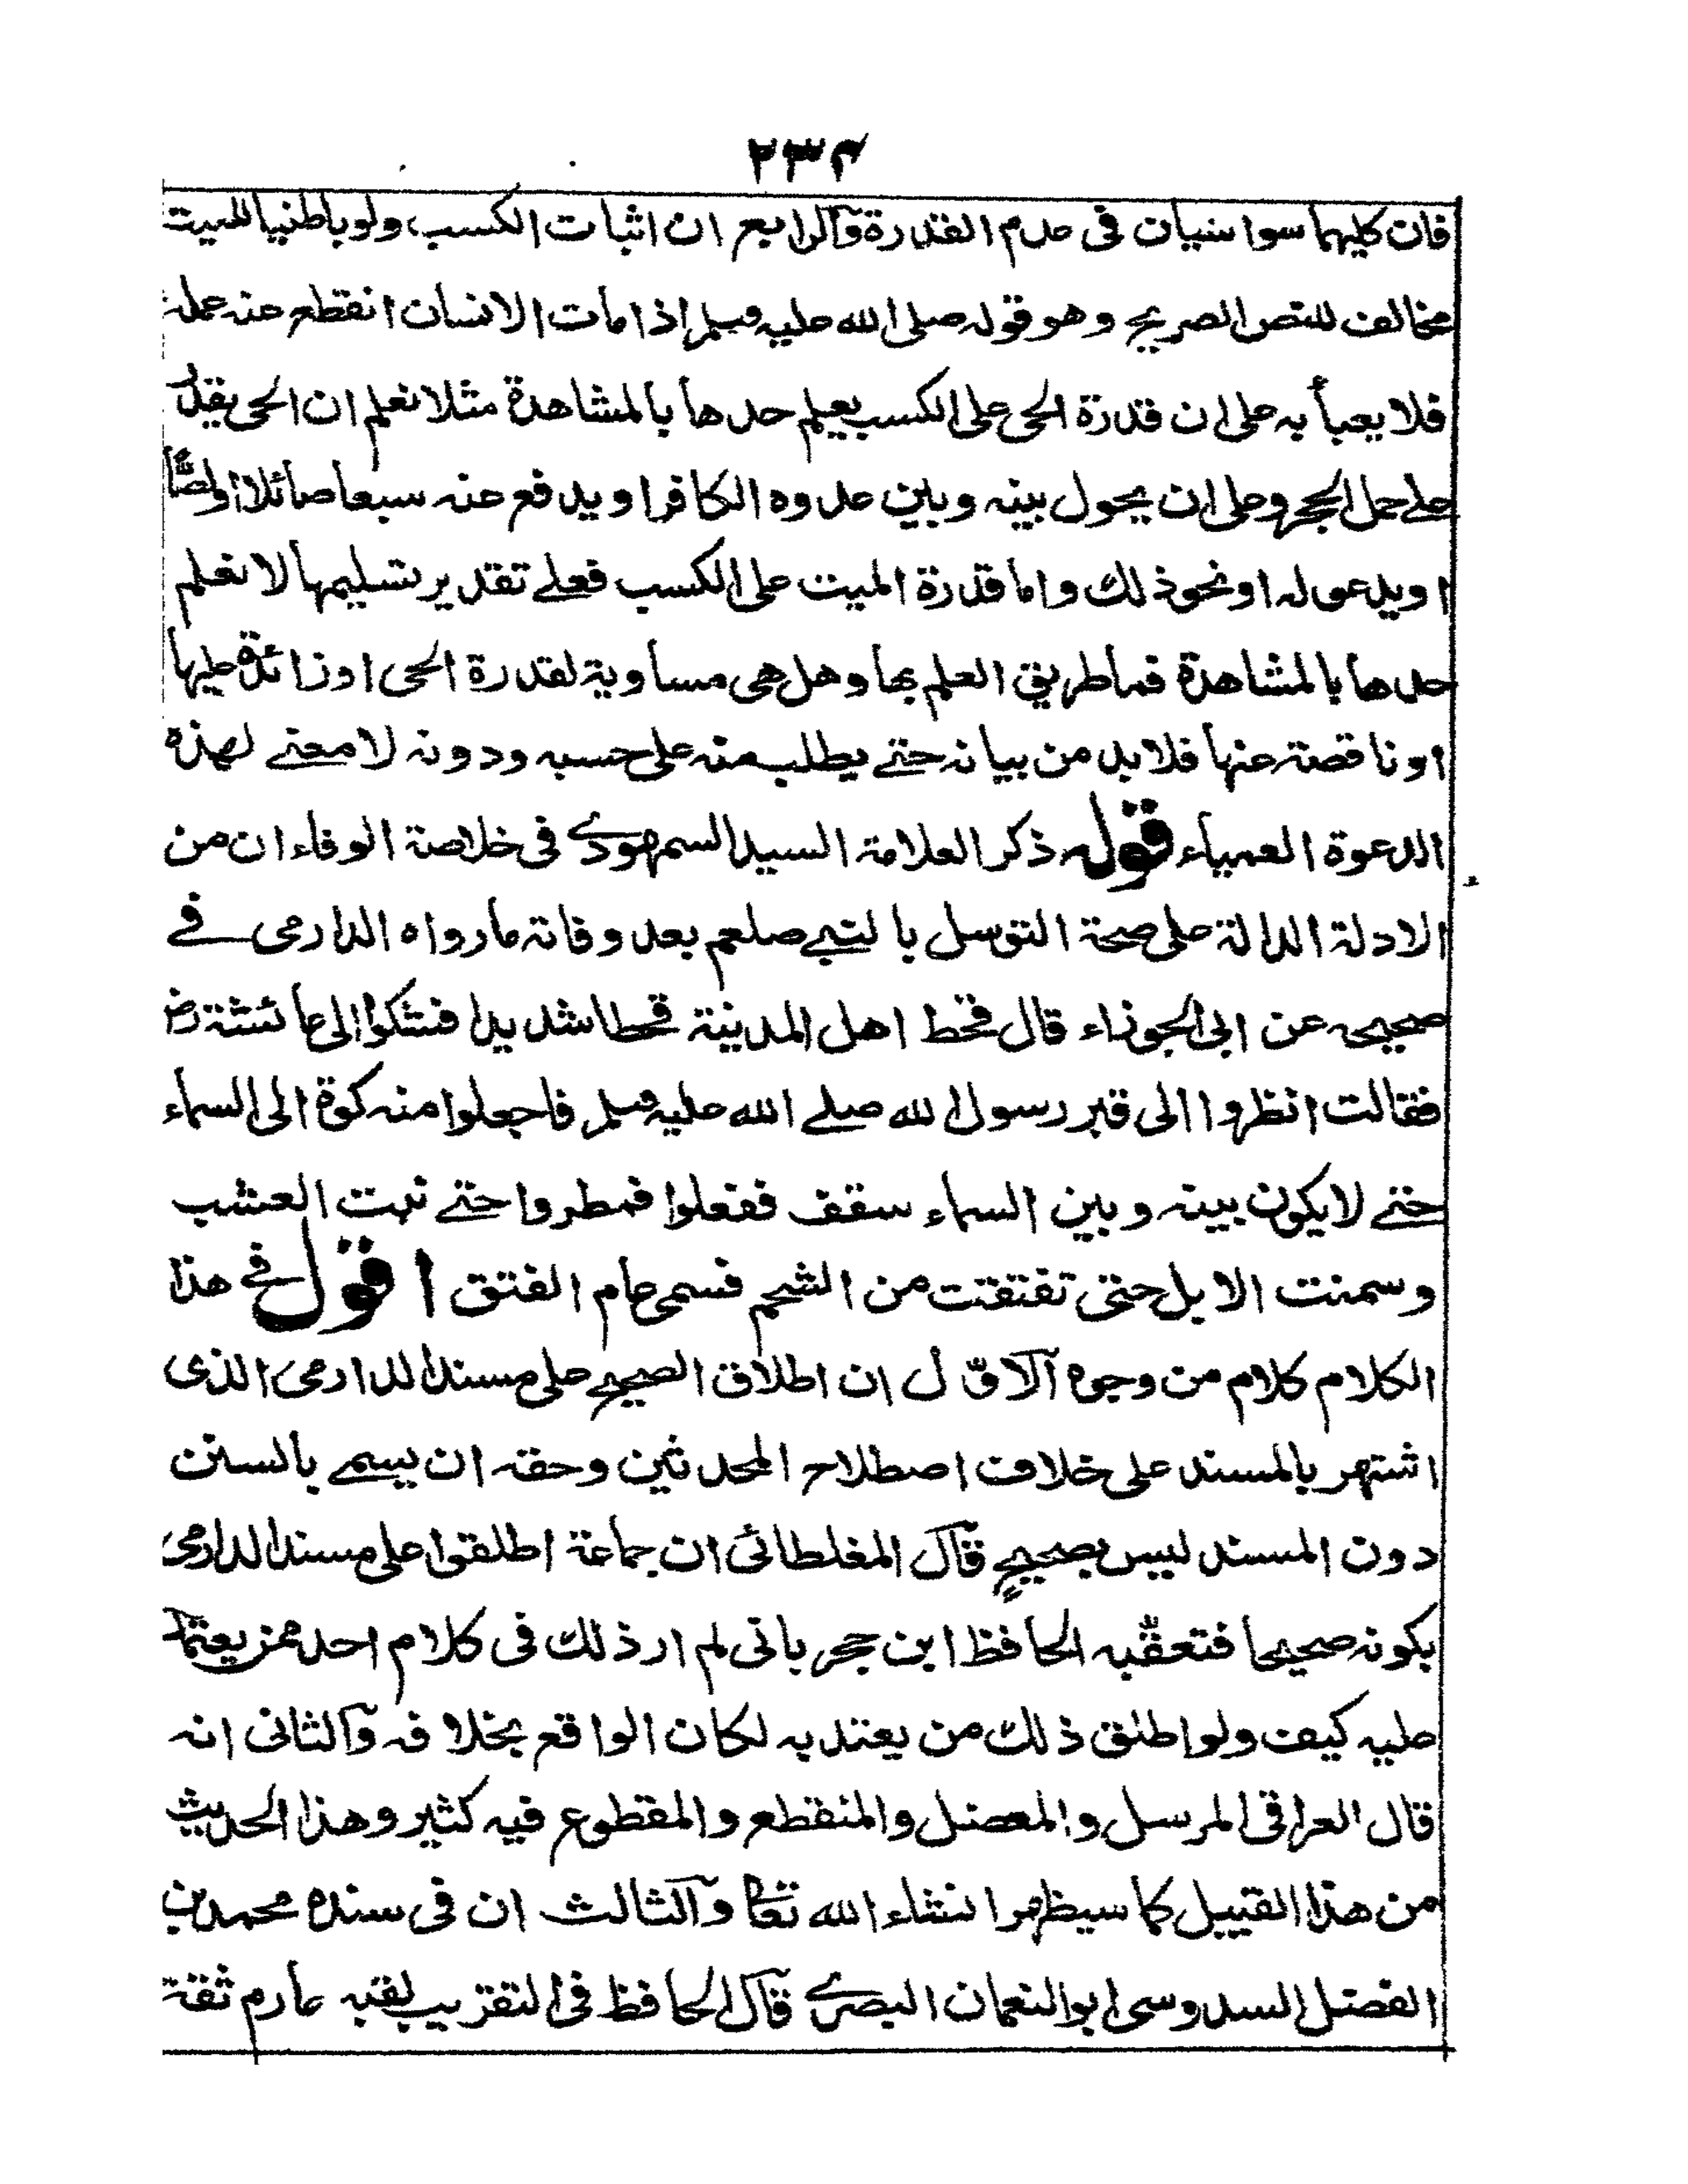 ٢٣٤
فان كليهما سواسيان فى عدم القدرة والرابع ان اثبات الكسب ولو باطنيا للميت
مخالف للنص الصريح وهو قوله صلى الله عليه وسلم اذا مات الانسان انقطع عنه عمله
فلا يعبأ به على ان قدرة الحى على الكسب يعلم حدها بالمشاهدة مثلا نعلم ان الحى يقدر
على حمل الحجر وعلى ان يحول بينه وبين عدوه الكافر او يدفع عنه سبعا صائلا او لصًّا
او يدعو له او نحو ذلك واما قدرة الميت على الكسب فعلے تقدير تسليمها لا نعلم
حدها بالمشاهدة فما طريق العلم بها وهل هى مساوية لقدرة الحى او زائدة عليها
او ناقصة عنها فلا بد من بيانه حتے يطلب منه على حسبه ودونه لا معنے لهذه
الدعوة العمياء قوله ذكر العلامة السيد السمهودے فى خلاصة الوفاء ان من
الادلة الدالة على صحة التوسل بالنبے صلعم بعد وفاته ما رواه الدارمى فے
صحيحه عن ابى الجوزاء قال قحط اهل المدينة قحطا شديدا فشكوا الى عائشة رض
فقالت انظروا الى قبر رسول الله صلے الله عليه وسلم فاجعلوا منه كوة الى السماء
حتے لا يكون بينه وبين السماء سقف ففعلوا فمطروا حتے نبت العشب
وسمنت الابل حتى تفتقت من الشحم فسمى عام الفتق اقول فے هذا
الكلام كلام من وجوه الاوّل ان اطلاق الصحيح على مسند الدارمى الذى
اشتهر بالمسند على خلاف اصطلاح المحدثين وحقه ان يسمے بالسنن
دون المسند ليس بصحيح قال المغلطائى ان جماعة اطلقوا على مسند الدارمى
بكونه صحيحا فتعقّبه الحافظ ابن حجر بانى لم ار ذلك فى كلام احد ممن يعتمد
عليه كيف ولو اطلق ذلك من يعتد به لكان الواقع بخلافه والثانى انه
قال العراقى المرسل والمعضل والمنقطع والمقطوع فيه كثير وهذا الحديث
من هذا القبيل كما سيظهر انشاء الله تعا والثالث ان فى سنده محمد بن
الفضل السدوسى ابو النعمان البصرے قال الحافظ فى التقريب لقبه عارم ثقة